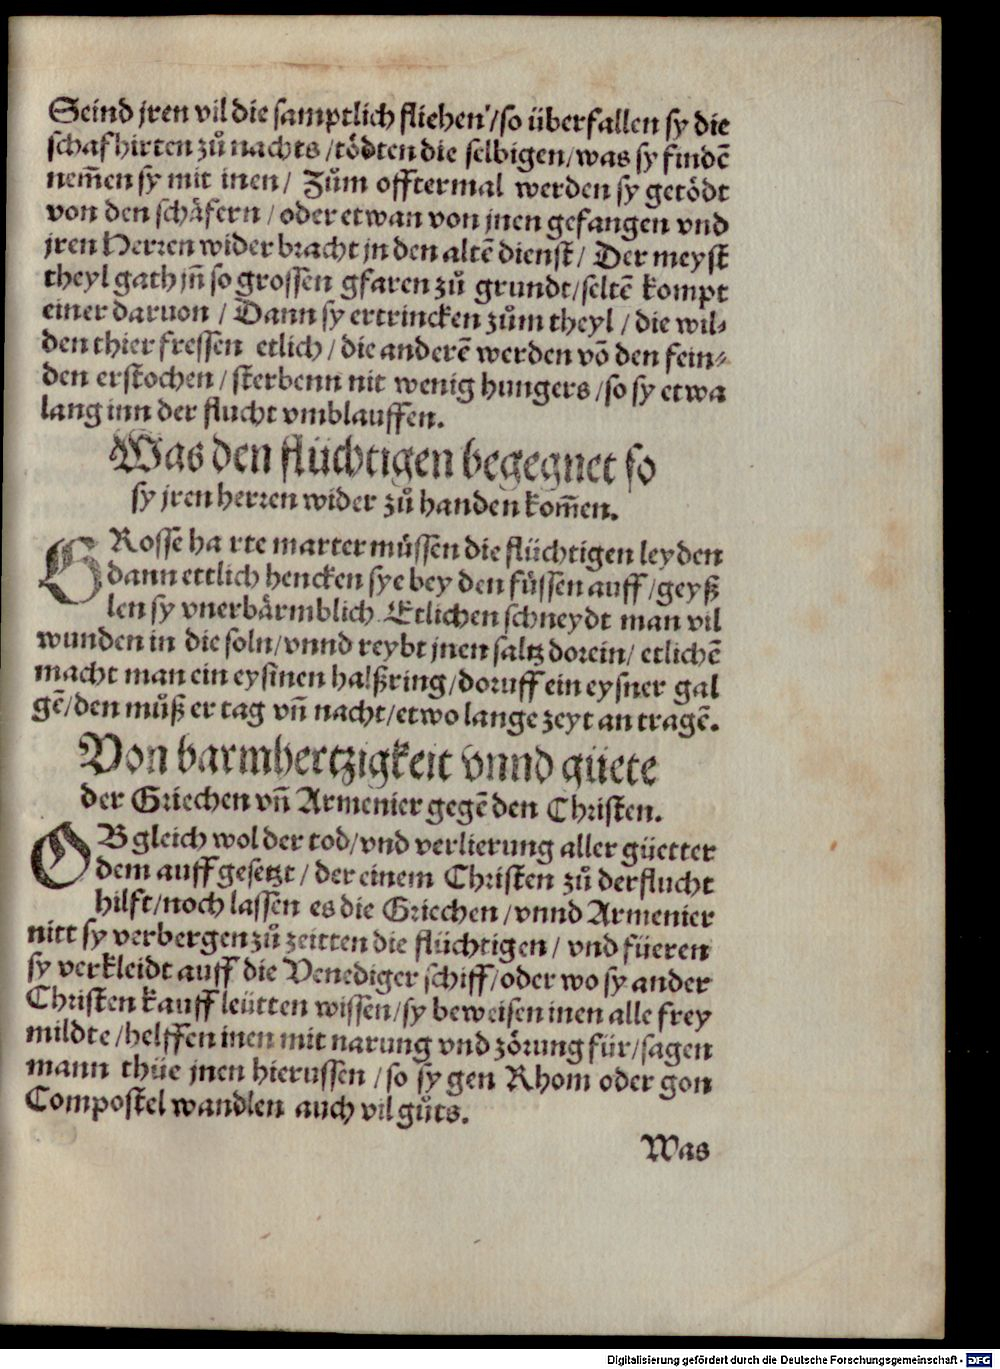 Seind jren vil die samptlich fliehen / so überfallen sy die
schaf hirten zů nachts / tödten die selbigen / was sy findē
nem̄en sy mit inen / Zům offtermal werden sy getödt
von den schäfern / oder etwan von jnen gefangen vnd
jren Herren wider bracht jn den altē dienst / Der meyst
theyl gath jn̄ so grossen gfaren zů grundt / seltē kompt
einer daruon / Dann sy ertrincken zům theyl / die wil⸗
den thier fressen etlich / die anderē werden vō den fein⸗
den erstochen / sterbenn nit wenig hungers / so sy etwa
lang inn der flucht vmblauffen.
Was den flüchtigen begegnet so
sy jren herren wider zů handen kom̄en.
GRosse ha rte marter müssen die flüchtigen leyden
dann ettlich hencken sye bey den füssen auff / geyß
len sy vnerbärmblich Etlichen schneydt man vil
wunden in die soln / vnnd reybt jnen saltz dorein / etlichē
macht man ein eysinen halßring / doruff ein eysner gal
gē / den můß er tag vn̄ nacht / etwo lange zeyt an tragē.
Von barmhertzigkeit vnnd güete
der Griechen vn̄ Armenier gegē den Christen.
OB gleich wol der tod / vnd verlierung aller güetter
dem auff gesetzt / der einem Christen zů der flucht
hilft / noch lassen es die Griechen / vnnd Armenier
nitt sy verbergen zů zeitten die flüchtigen / vnd füeren
sy verkleidt auff die Venediger schiff / oder wo sy ander
Christen kauff leütten wissen / sy beweisen inen alle frey
mildte / helffen inen mit narung vnd zörung für / sagen
mann thüe jnen hierussen / so sy gen Rhom oder gon
Compostel wandlen auch vil gůts.
Was
Digitalisierung gefördert durch die Deutsche Forschungsgemeinschaft - DFG